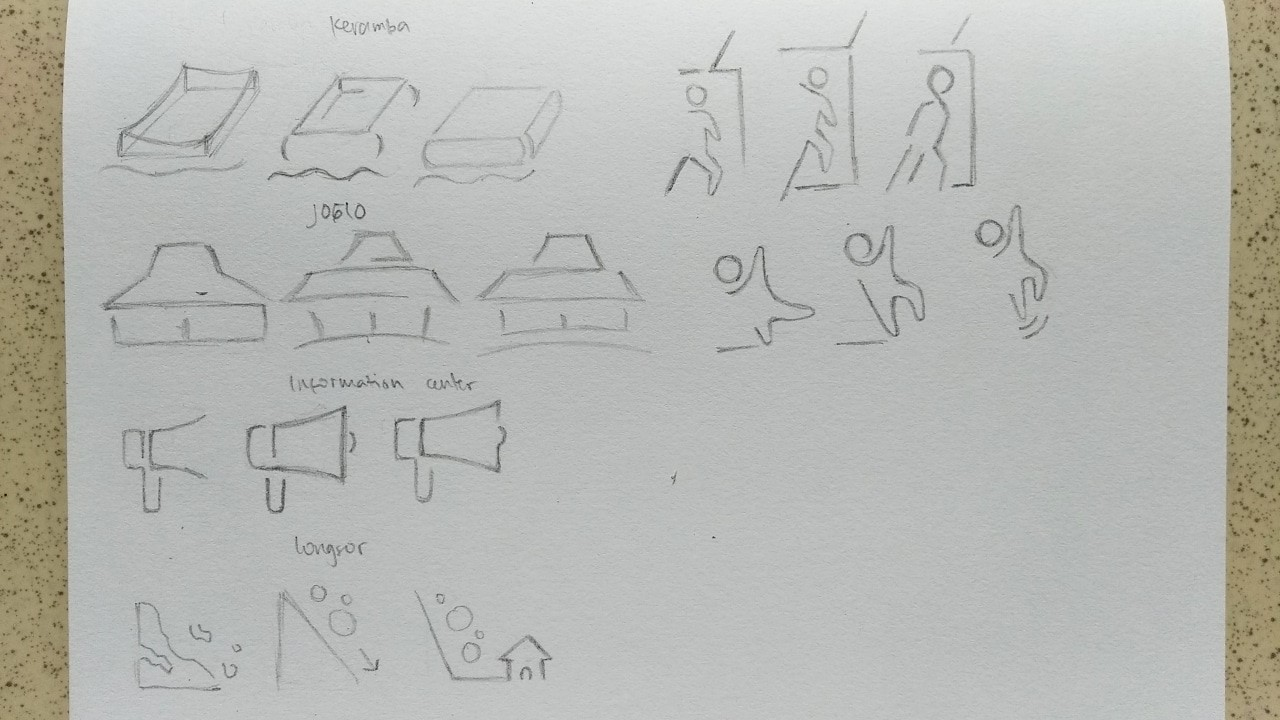 Keramba
JOGLO
Information center
longsor